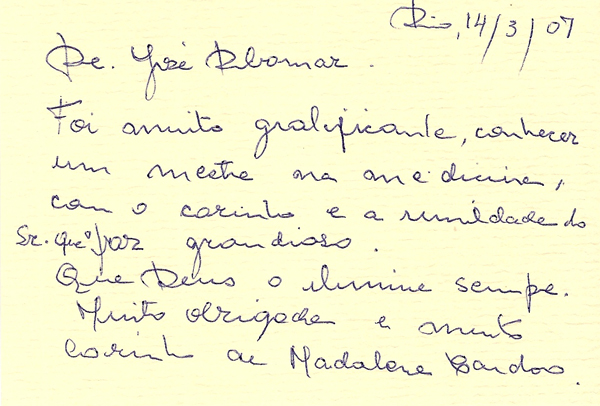 Rio, 14/3/07
Dr. José Ribamar.
Foi muito gratificante, conhecer
um mestre na medicina,
com o carinho e a umildade do
Sr. que o faz grandioso.
Que Deus o ilumine sempre.
Muito obrigada e muito
carinho de Madalena Cardoso.